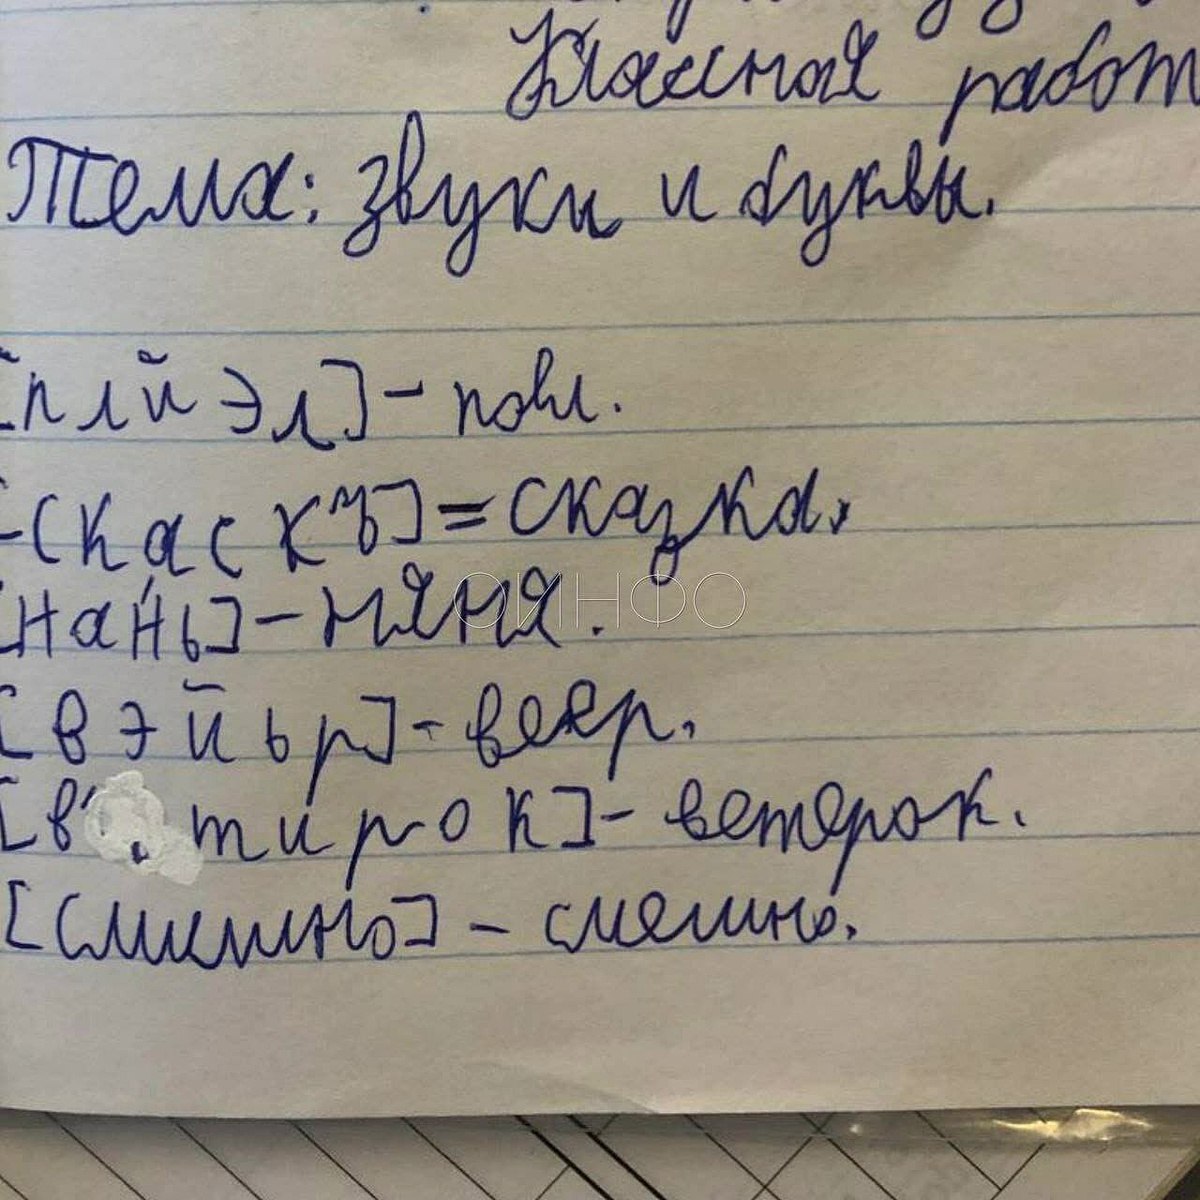 Классная работ
Тема: звуки и буквы.
[плйэл] - поел.
[скаскъ] = сказка.
[нан'ь] - няня.
ОИНФО
[вэйър] - веер.
[в' тирок] - ветерок.
[смишно] - смешно.